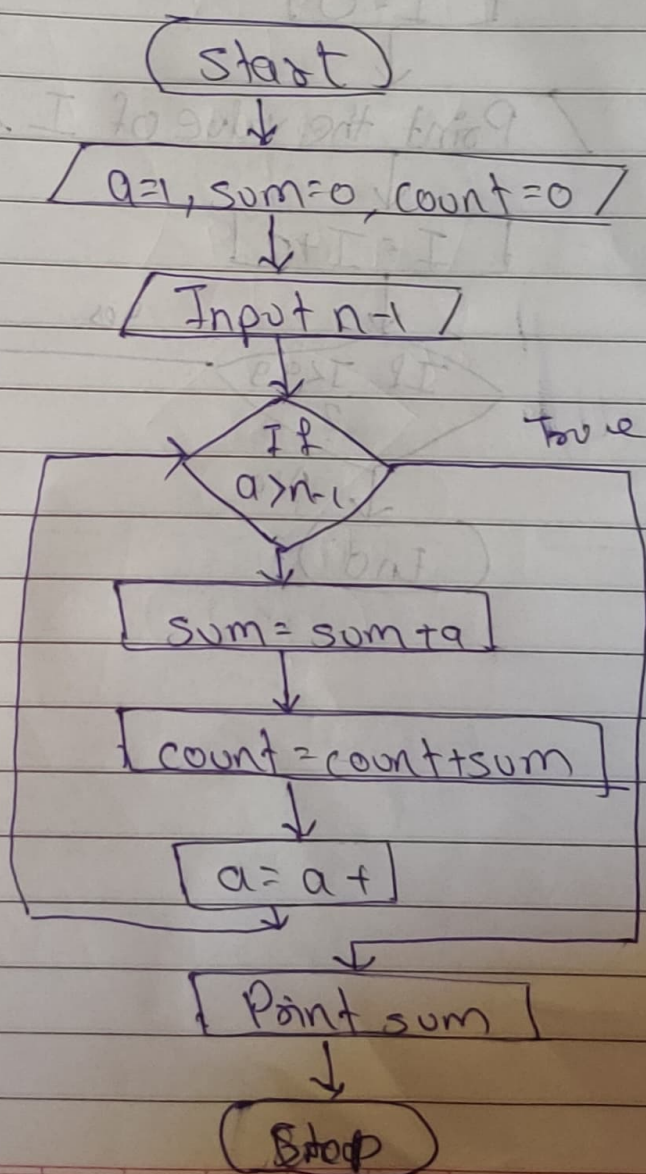 Start
a=1, sum=0, count=0
Input n-1
If
a>n-1
True
sum= sum+a
count=count+sum
a= a+
Print sum
Stop